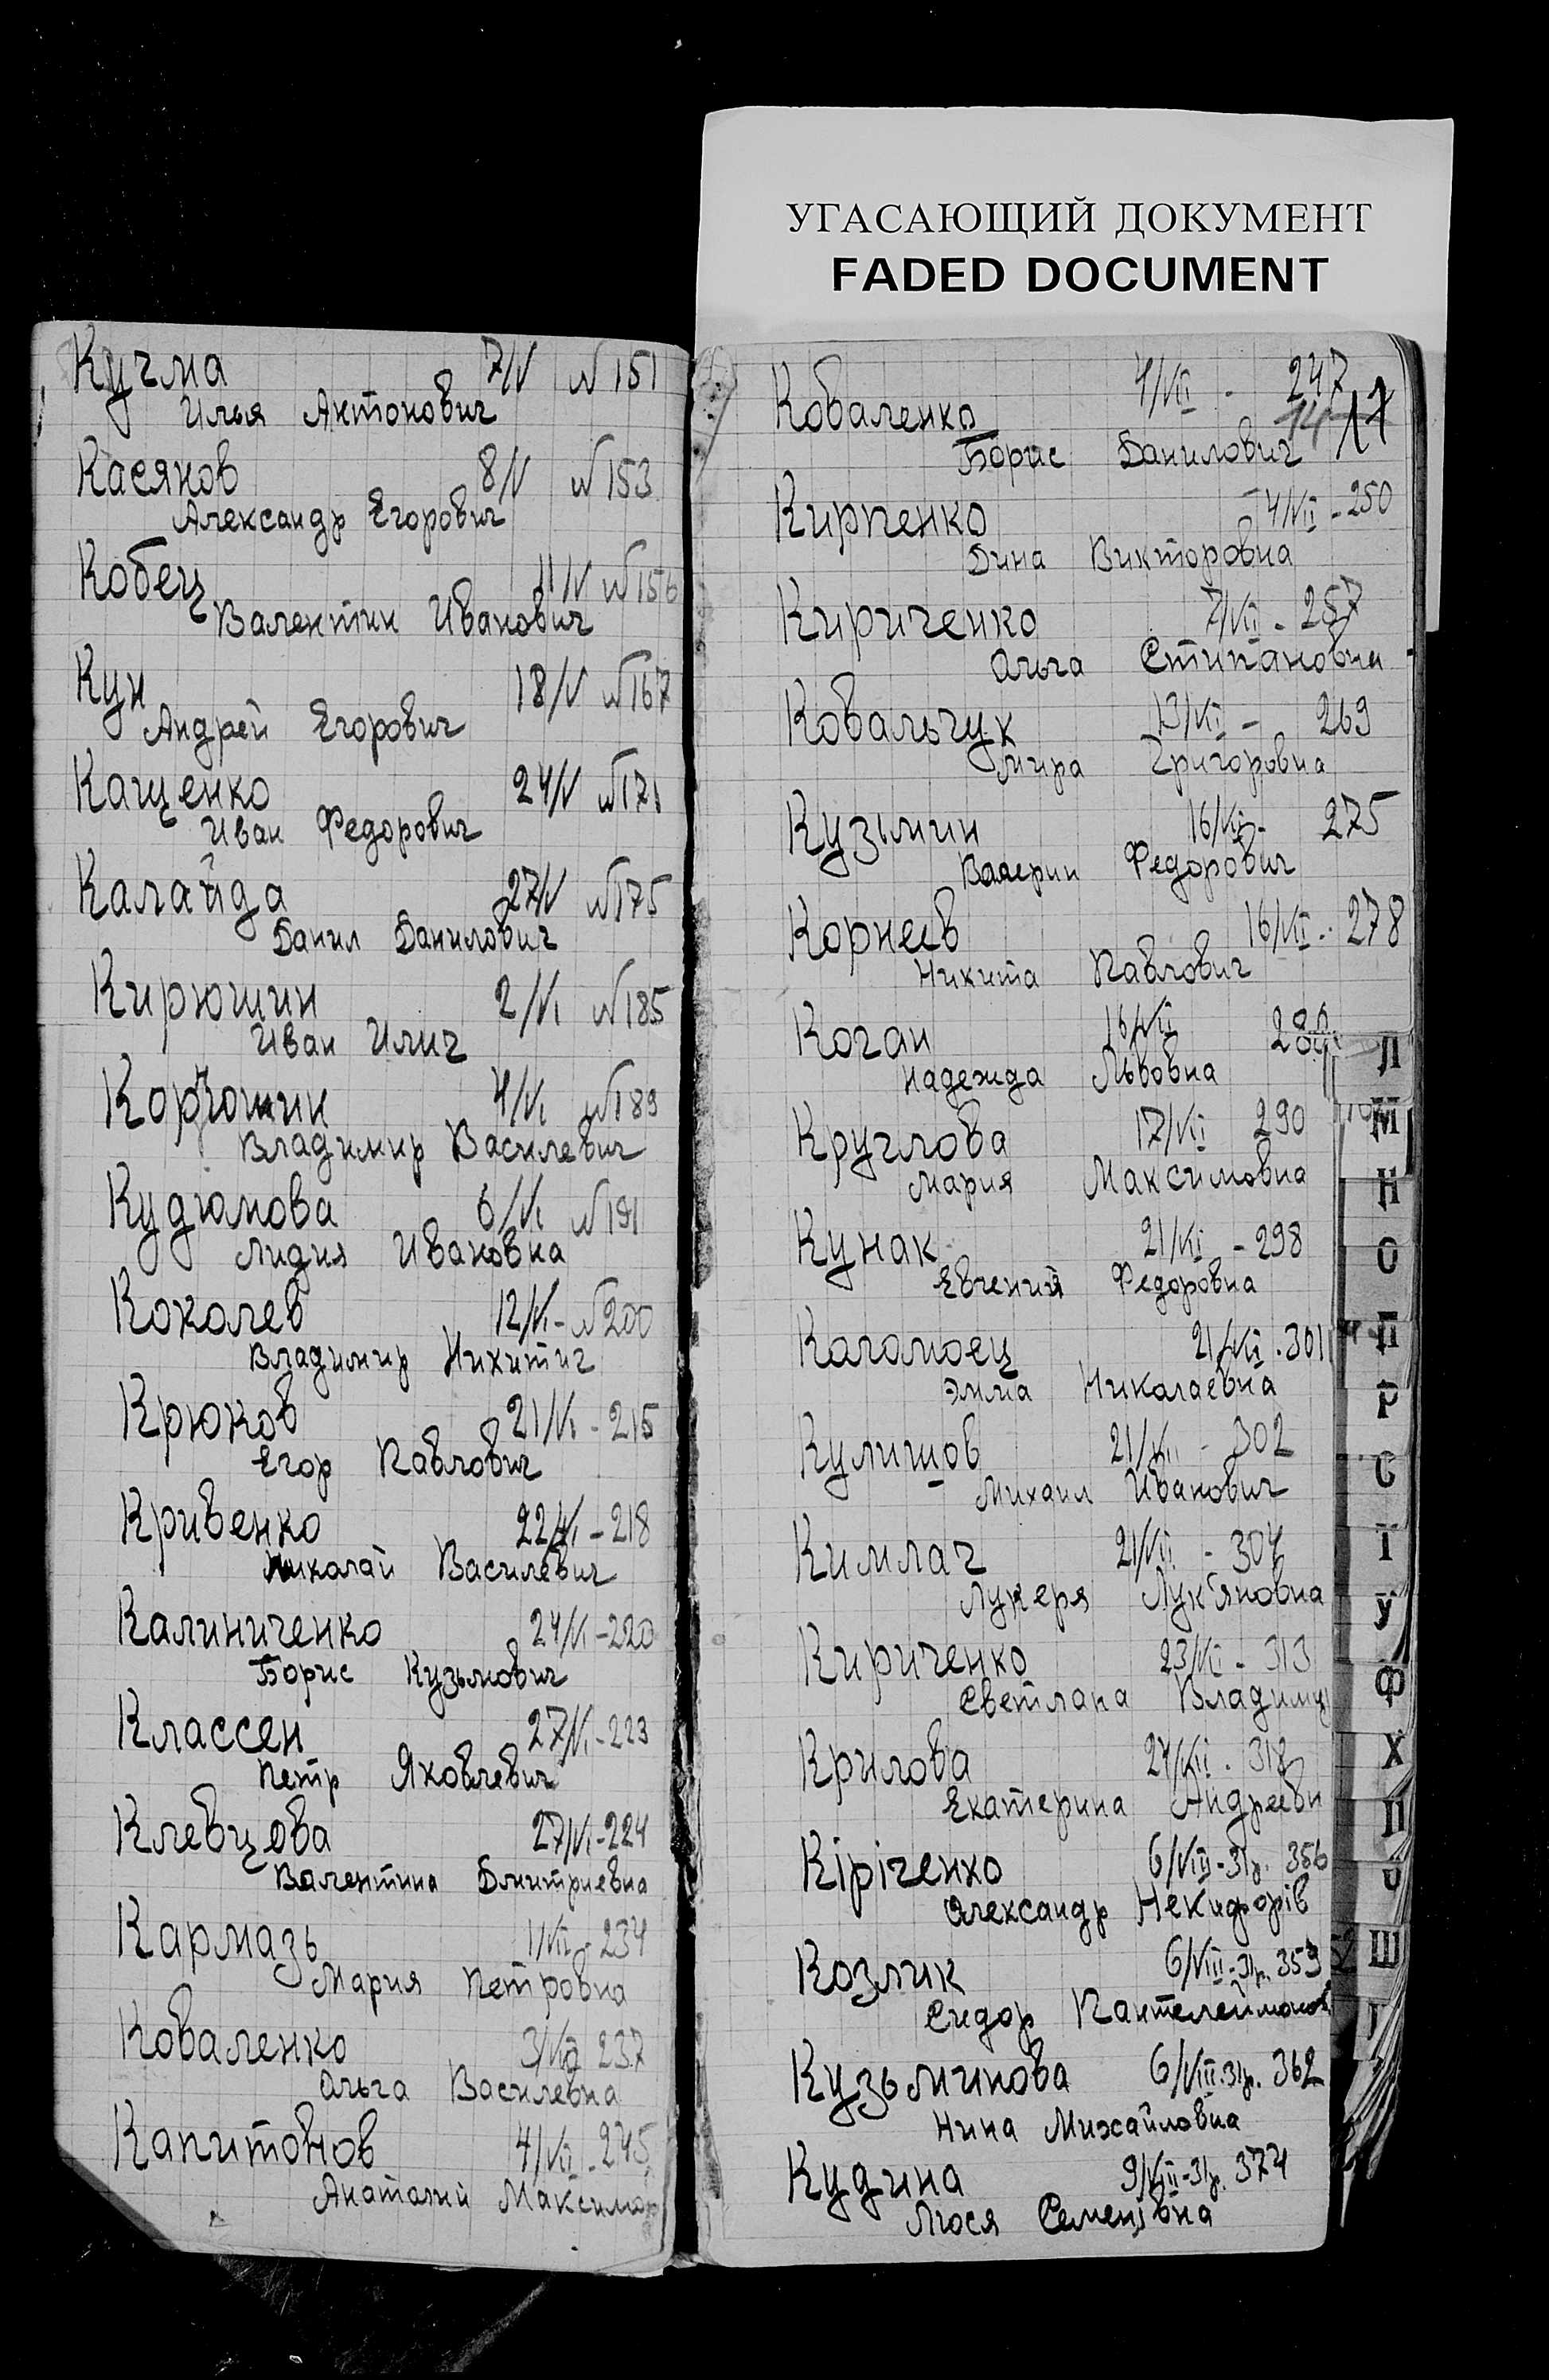 УГАСАЮЩИЙ ДОКУМЕНТ
FADED DOCUMENT
Кучма 7/V №151
Илья Антонович
Касянов 8/V №153
Александр Егорович
Кобец 11/V №156
Валентин Иванович
Кун 18/V №167
Андрей Егорович
Кащенко 24/V №171
Иван Федорович
Калайда 27/V №175
Данил Данилович
Кирюшин 2/VI №185
Иван Илич
4/VI №189
Владимир Василевич
Кудюмова 6/VI №191
Лидия Ивановна
Коколев 12/VI - №200
Владимир Никитич
Крюков 21/VI - 215
Егор Павлович
Кривенко 22/VI - 218
Николай Василевич
Калиниченко 24/VI - 220
Борис Кузьмович
Классен 27/VI - 223
Петр Яковлевич
Клевцова 27/VI - 224
Валентина Дмитриевна
Кармазь 1/VII - 234
Мария Петровна
Коваленко 3/VII 237
Ольга Василевна
Капитонов 4/VII - 245
Анатолий Максимов
Коваленко 4/VII - 247
14 11
Борис Данилович
Кирпенко 4/VII - 250
Дина Викторовна
Кириченко 7/VII - 257
Ольга Стипановна
Ковальчук 13/VII - 269
Мира Григоровна
Кузьмин 16/VII - 275
Валерии Федорович
Корнеев 16/VII - 278
Никита Павлович
Коган 16/VII
Надежда Львовна
Круглова 17/VII 290
Мария Максимовна
Кунак 21/VII - 298
Евгений Федоровна
Каламоец 21/VII - 301
Эмма Николаевна
Кулишов 21/VII - 302
Михаил Иванович
Кимлач 21/VII - 304
Лукеря Лук'яновна
Кириченко 23/VII - 313
Светлана Владимир
Крилова 24/VII - 318
Екатерина Андреевн
Кіріченко 6/VIII - 31р. 356
Александр Некифорів
Козлик 6/VIII - 31р. 359
Сидор Пантелеймонов
Кузьминова 6/VIII - 31р. 362
Нина Михайловна
Кудина 9/VIII - 31р. 374
Люся Семенівна
Л
М
Н
О
П
Р
С
Т
У
Ф
Х
Ц
Ш